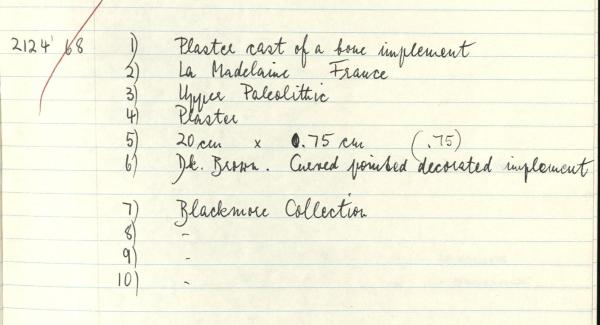 2124' 68 1) Plaster cast of a bone implement
2) La Madelaine France
3) Upper Paleolithic
4) Plaster
5) 20 cm x 0.75 cm (.75)
6) Dk. Brown. Curved pointed decorated implement
7) Blackmore Collection
8) -
9) -
10) -